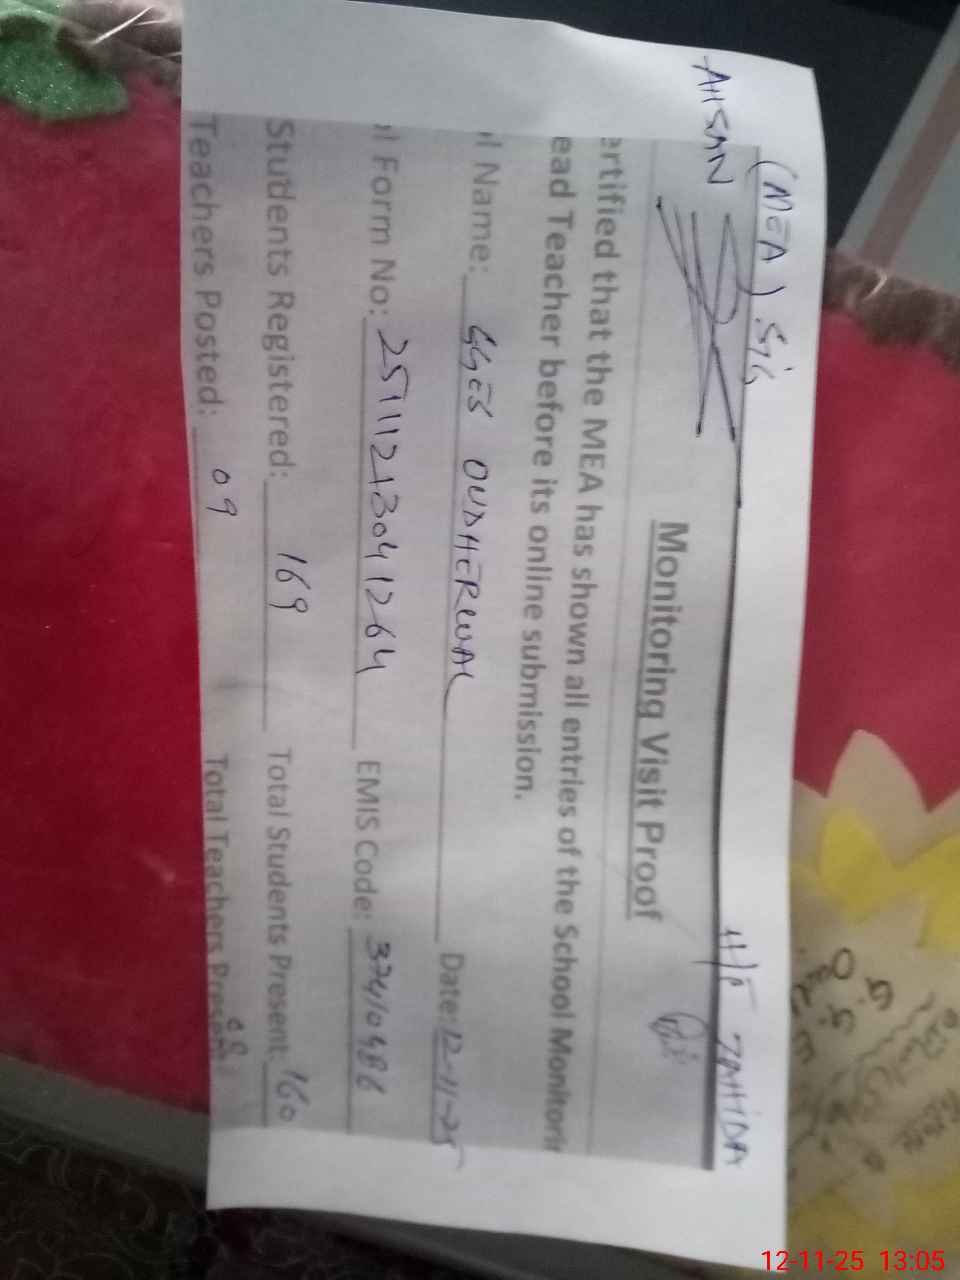 AHSAN (MEA) Sig
H/T ZAHIDA
Monitoring Visit Proof
ertified that the MEA has shown all entries of the School Monitorin
ead Teacher before its online submission.
l Name: GGES OUDHERWAL Date: 12-11-25
l Form No: 25111213041264 EMIS Code: 37410486
Students Registered: 169 Total Students Present: 160
Teachers Posted: 09 Total Teachers Present 08
12-11-25 13:05